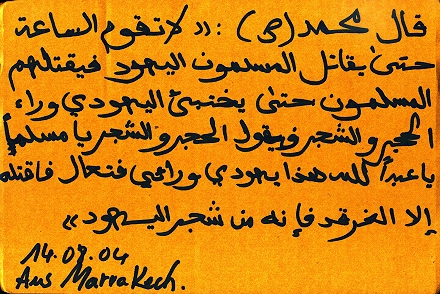 قال محمد (ص) : « لا تقوم الساعة
حتى يقاتل المسلمون اليهود فيقتلهم
المسلمون حتى يختبئ اليهودي وراء
الحجر و الشجر فيقول الحجر و الشجر يا مسلم
يا عبد الله هذا يهودي ورائي فتعال فاقتله
إلا الغرقد فإنه من شجر اليهود »
14.07.04
Aus Marrakech.